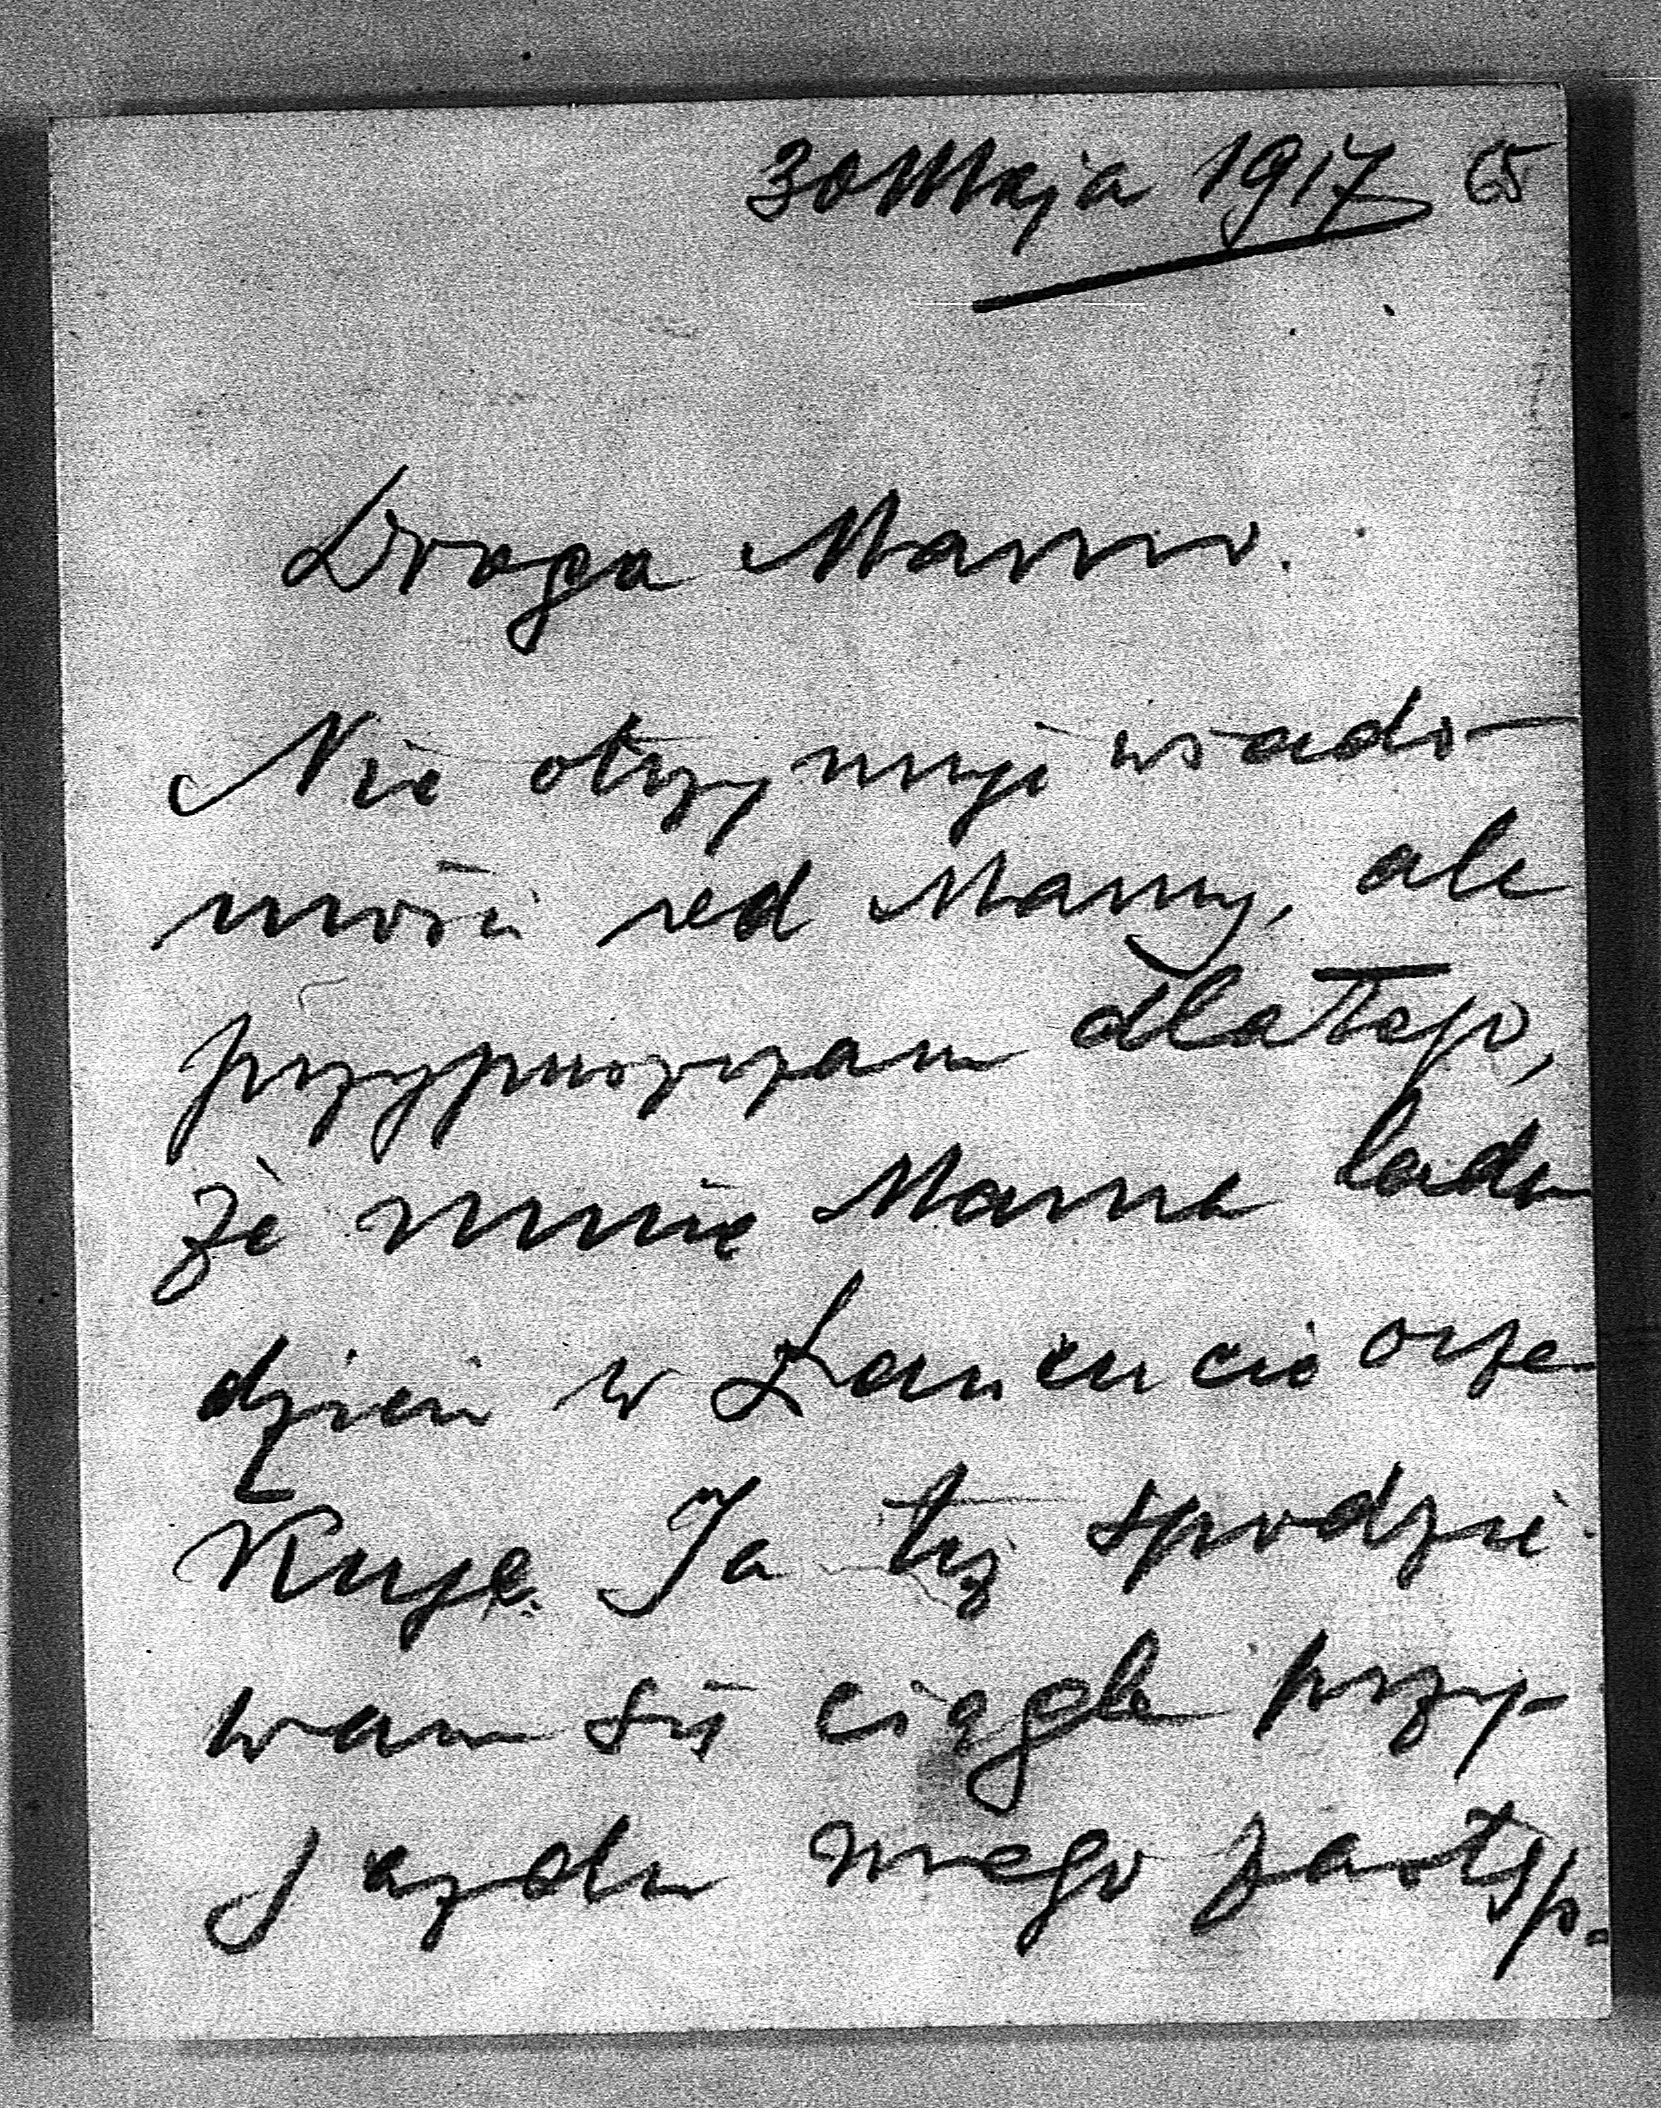 30 Maja 1917 65
Droga Mamo.
Nie otrzymuję wiado-
mości od Mamy, ale
przypuszczam dlatego,
że mnie Mama lada
dzień w Łańcucie ocze
kuje. Ja też spodzie
wam się ciągle przy-
jazdu mego zastęp-